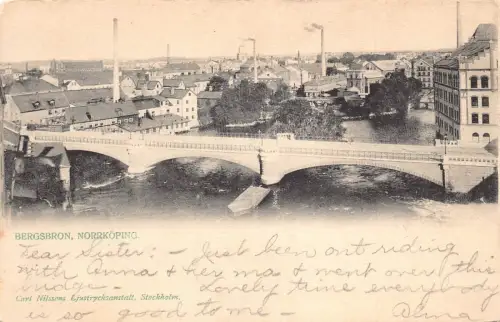 BERGSBRON, NORRKÖPING.
Dear Sister: - Just been out riding
with Anna & her ma & went over this
bridge. - Lovely time everybody
Carl Nilssons Ljustrycksanstalt. Stockholm.
is so good to me - Alma